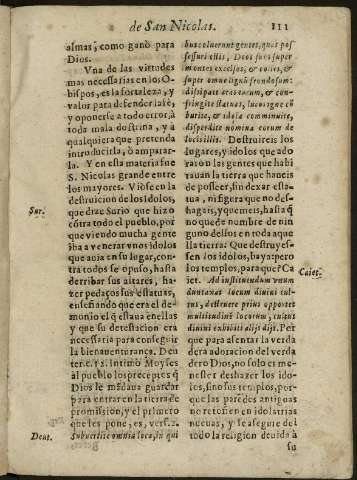 de San Nicolas. 111
almas, como ganò para
Dios.
Vna de las virtudes
mas necessarias en los O-
bispos, es la fortaleza, y
valor para defender la fè,
y oponerse a todo error, à
toda mala dotrina, y a
qualquiera que pretenda
introducirla, ò amparar-
la. Y en esta materia fue
S. Nicolas grande entre
los mayores. Viòse en la
destruicion de los idolos,
Sur.
que dize Surio que hizo
cõtra todo el pueblo, por
que viendo mucha gente
iba a venerar vnos idolos
que auia en su lugar, con-
tra todos se opuso, hasta
derribar sus altares, ha-
zer pedaços sus estatuas,
enseñando que era el de-
monio el q̃ estaua en ellas
y que su detestacion era
necessaria para conseguir
la bienauentrança. Deu
ter. c. 12. intimò Moyses
al pueblo los preceptos q̃
Dios le mãdaua guardar
para entrar en la tierra de
promission, y el primero
que les pone, es, vers. 2.
Deut.
Subuertite omnia loca, in qui
bus coluerunt gentes, quas pos-
sessuri estis, Deos suos super
montes excelsos, & colles, &
super omne lignũ frondosum:
dissipate aras eorum, & con-
fringite statuas, lucos igne cõ
burite, & idola comminuite,
disperdite nomina eorum de
locis illis. Destruireis los
lugares, y idolos que ado
rarõ las gentes que habi
tauan la tierra que haueis
de posseer, sin dexar esta-
tua, ni figura que no des-
hagais, y quemeis, hasta q̃
no quede nombre de nin
guno dellos en toda aque
lla tierra: Que destruyes-
sen los idolos, baya: pero
los templos, para que? Ca
Caiet.
iet. Ad instituendum vnum
duntaxat locum diuini cul-
tus, destruere prius oportet
multitudinẽ locorum, cultus
diuini exhibiti alijs dijs. Por
que para assentar la verda
dera adoracion del verda
dero Dios, no solo es me-
nester deshazer los ido-
los, sino sus templos, por-
que las paredes antiguas
no retoñen en idolatrias
nueuas, y se assegure del
todo la religion deuida à
su